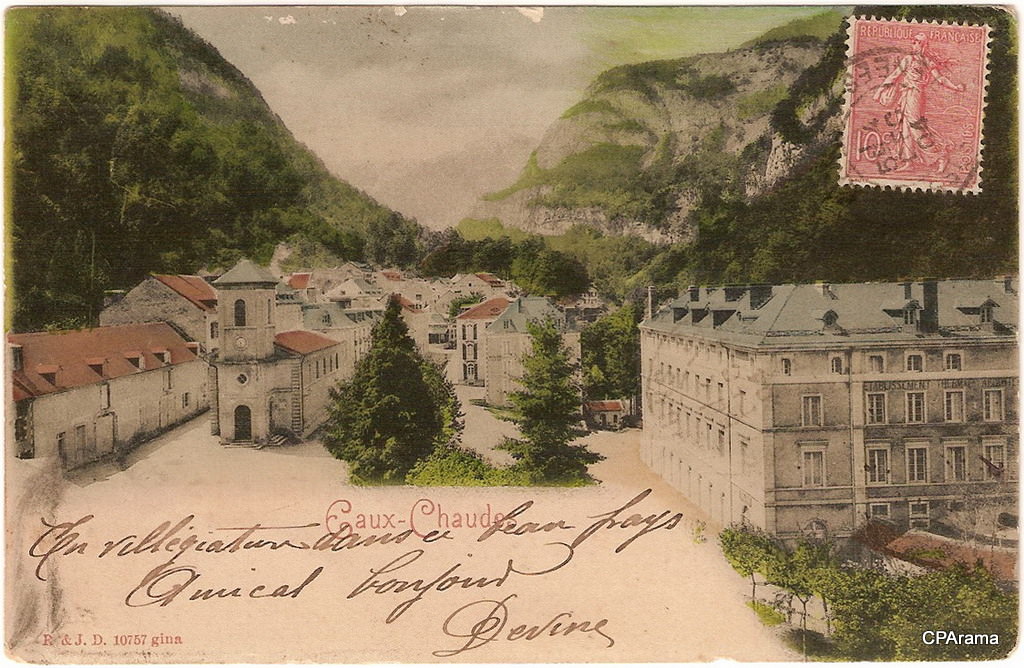 REPUBLIQUE FRANÇAISE
10
ETABLISSEMENT THERMAL
Eaux-Chaudes
En villégiature dans ce beau pays
Amical bonjour
Devine
R & J. D. 10757 gina
CPArama